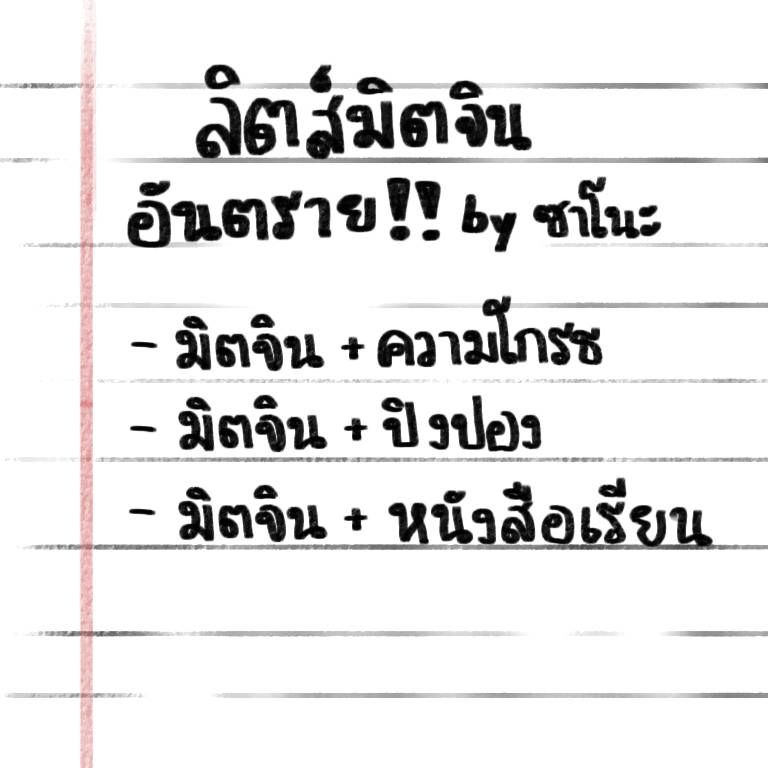 ลิตส์มิตจิน
อันตราย!! by ซาโนะ
- มิตจิน + ความโกรธ
- มิตจิน + ปิงปอง
- มิตจิน + หนังสือเรียน